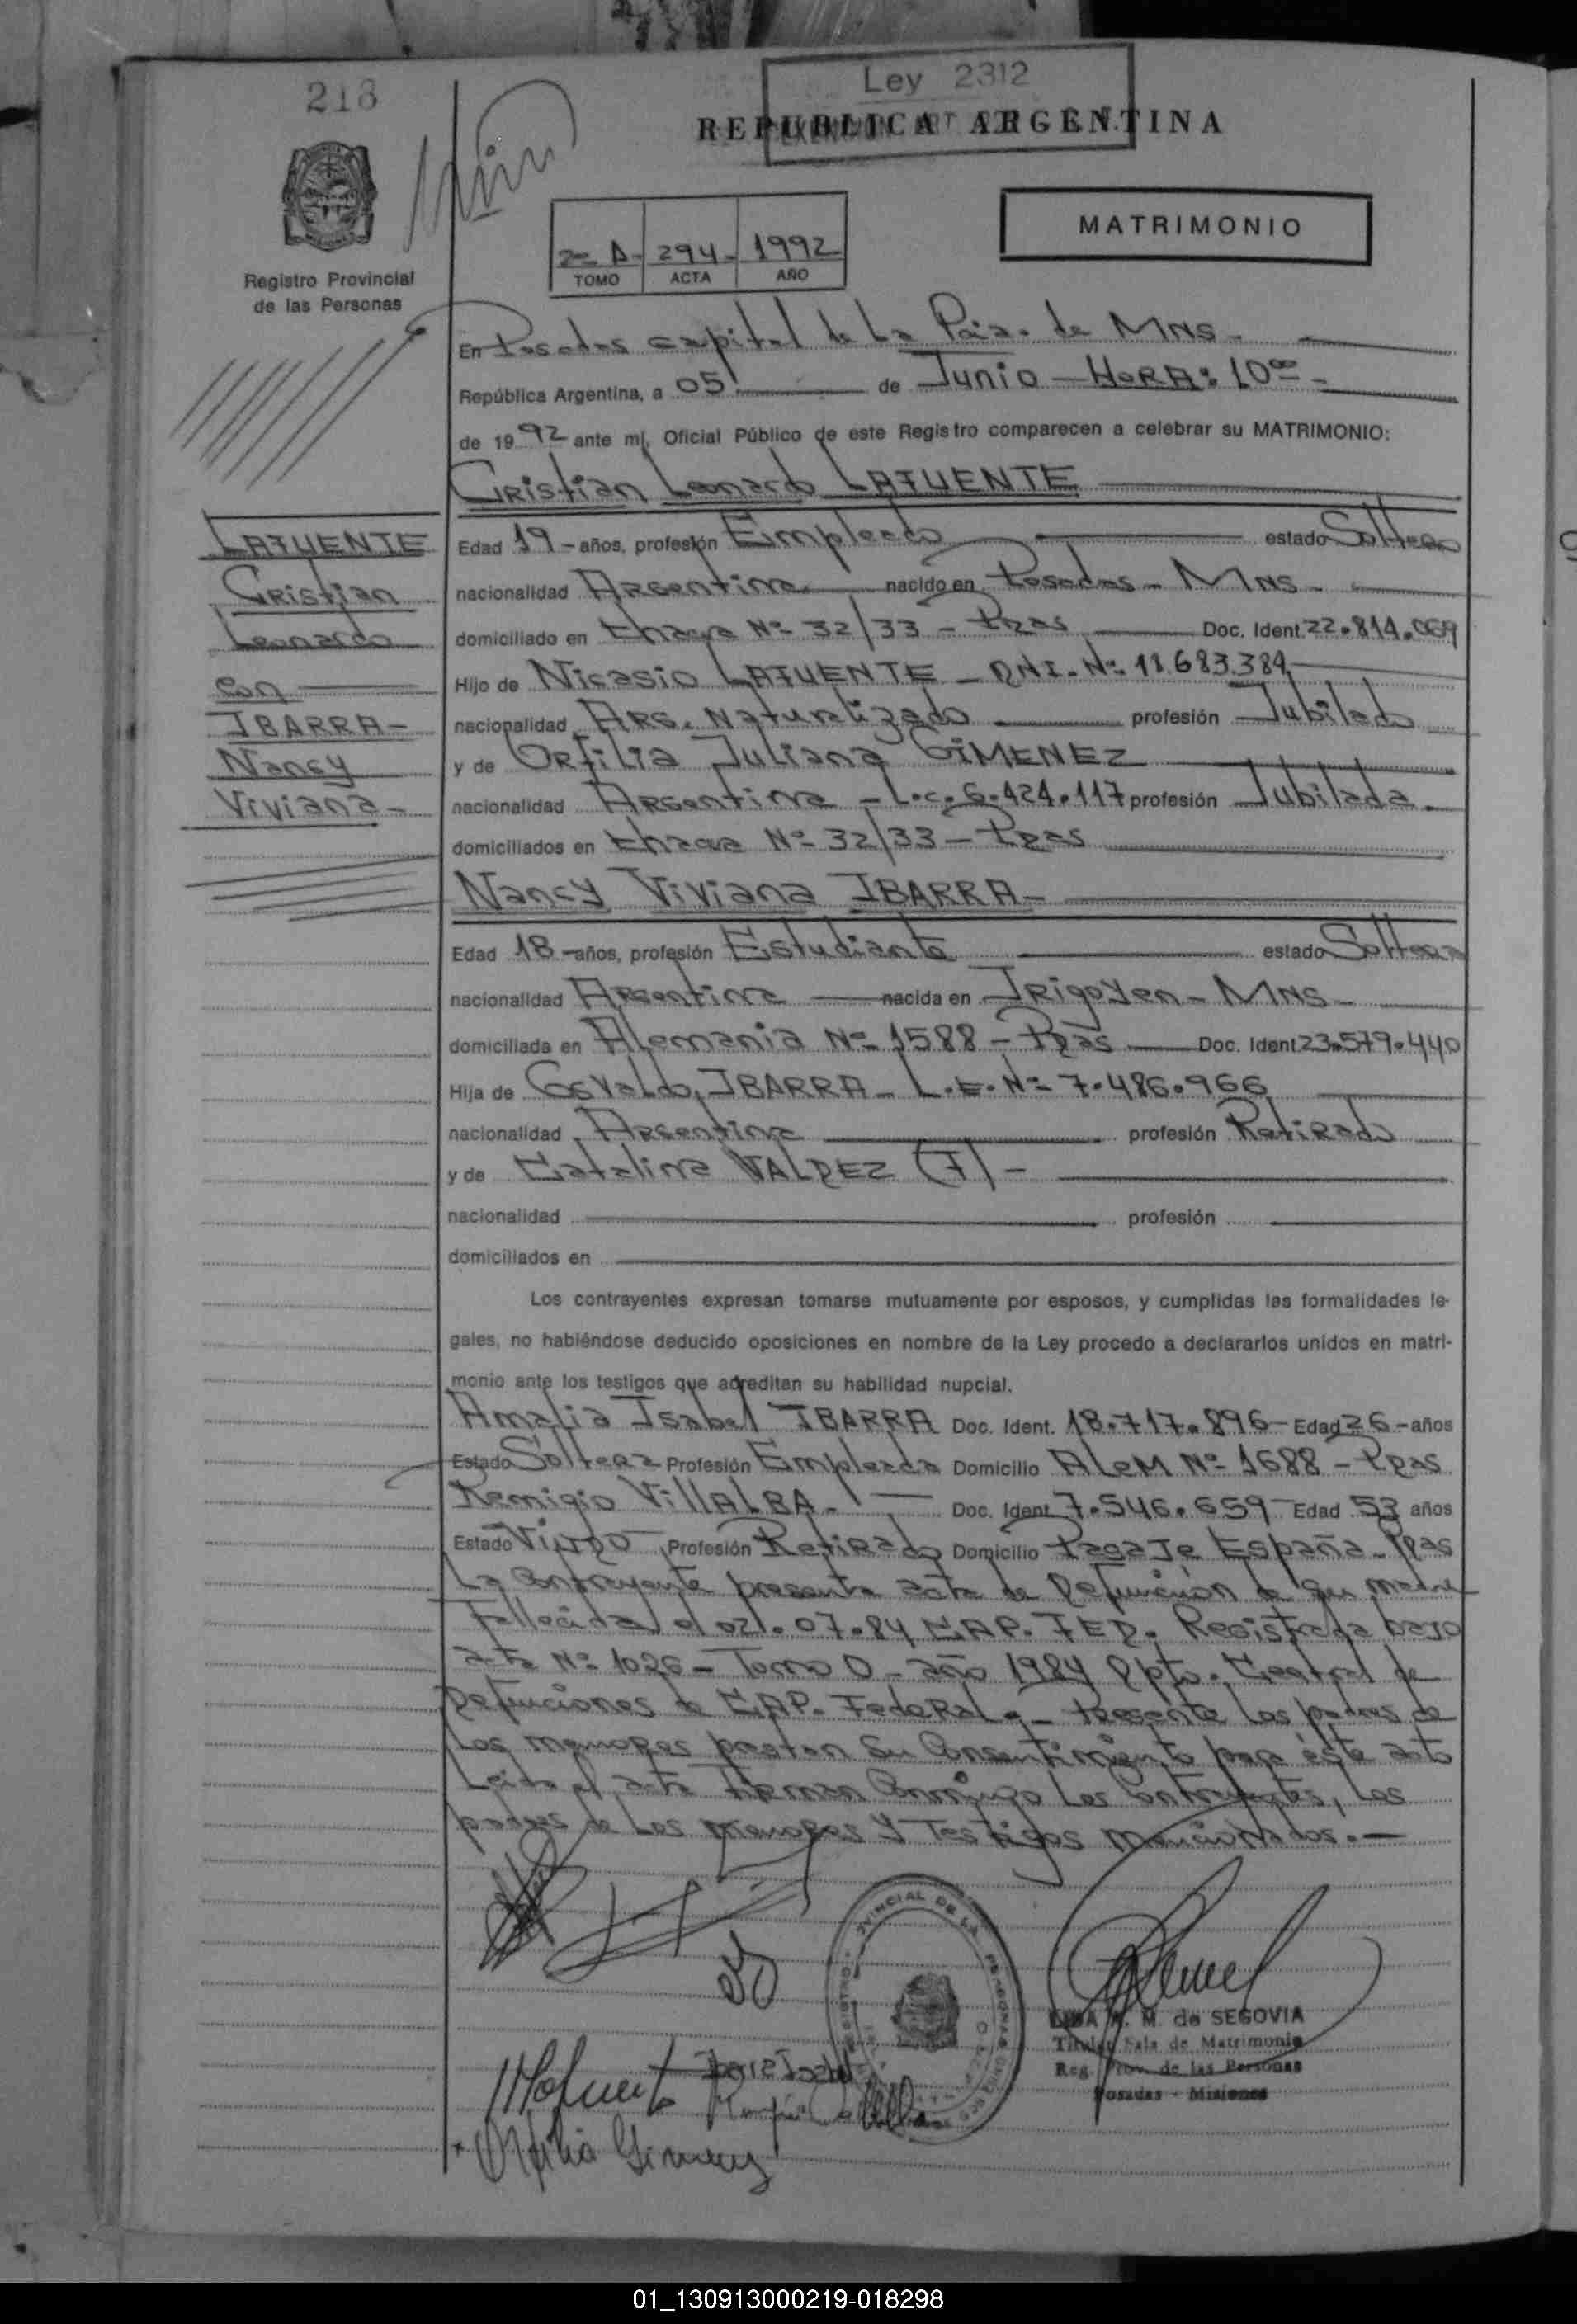 218
Ley 2312
REPUBLICA ARGENTINA
MATRIMONIO
2º A- 294- 1992-
TOMO ACTA AÑO
Registro Provincial
de las Personas
En Posadas capital de La Pcia. de MNS-
República Argentina, a 05 de Junio - HORA: 10ºº-
de 1992 ante mi, Oficial Público de este Registro comparecen a celebrar su MATRIMONIO:
Cristian Leonardo LAFUENTE
LAFUENTE
Cristian
Leonardo
con
IBARRA-
Nancy
Viviana-
Edad 19-años, profesión Empleado estado Soltero
nacionalidad Argentina nacido en Posadas - MNS-
domiciliado en Chacra Nº 32/33 - Pdas Doc. Ident. 22.814.069
Hijo de Nicasio LAFUENTE - DNI. Nº 18.683.384
nacionalidad Arg. Naturalizado profesión Jubilado
y de Orfilia Juliana GIMENEZ
nacionalidad Argentina - L.c. 6.424.117 profesión Jubilada.
domiciliados en Chacra Nº 32/33 - Pdas
Nancy Viviana IBARRA-
Edad 18-años, profesión Estudiante estado Soltera
nacionalidad Argentina nacida en Irigoyen - MNS-
domiciliada en Alemania Nº 1588 - Pdas Doc. Ident. 23.579.440
Hija de Osvaldo IBARRA - L.E. Nº 7.486.966
nacionalidad Argentina profesión Retirado
y de Catalina VALDEZ (F) -
nacionalidad profesión
domiciliados en
Los contrayentes expresan tomarse mutuamente por esposos, y cumplidas las formalidades le-
gales, no habiéndose deducido oposiciones en nombre de la Ley procedo a declararlos unidos en matri-
monio ante los testigos que acreditan su habilidad nupcial.
Amalia Isabel IBARRA Doc. Ident. 18.717.896- Edad 26-años
Estado Soltera Profesión Empleada Domicilio ALeM Nº 1688 - Pdas
Remigio VillALBA- Doc. Ident. 7.546.659- Edad 53 años
Estado Viudo Profesión Retirado Domicilio Pasaje España- Pdas
La Contrayente presenta acta de Defunción de su madre
Fallecida el 021.07.84 CAP. FED. Registrada bajo
acta Nº 1026- Tomo O- año 1984 Dpto. Central de
Defunciones de CAP. Federal.- Presente Los padres de
Los menores prestan Su Consentimiento para éste acto
Leida el acta Firman Conmigo Los Contrayentes, Los
padres de Los menores Y Testigos mencionados.-
M. de SEGOVIA
Titular Sala de Matrimonio
Reg. Prov. de las Personas
Posadas - Misiones
Orfilia Gimenez
01_130913000219-018298